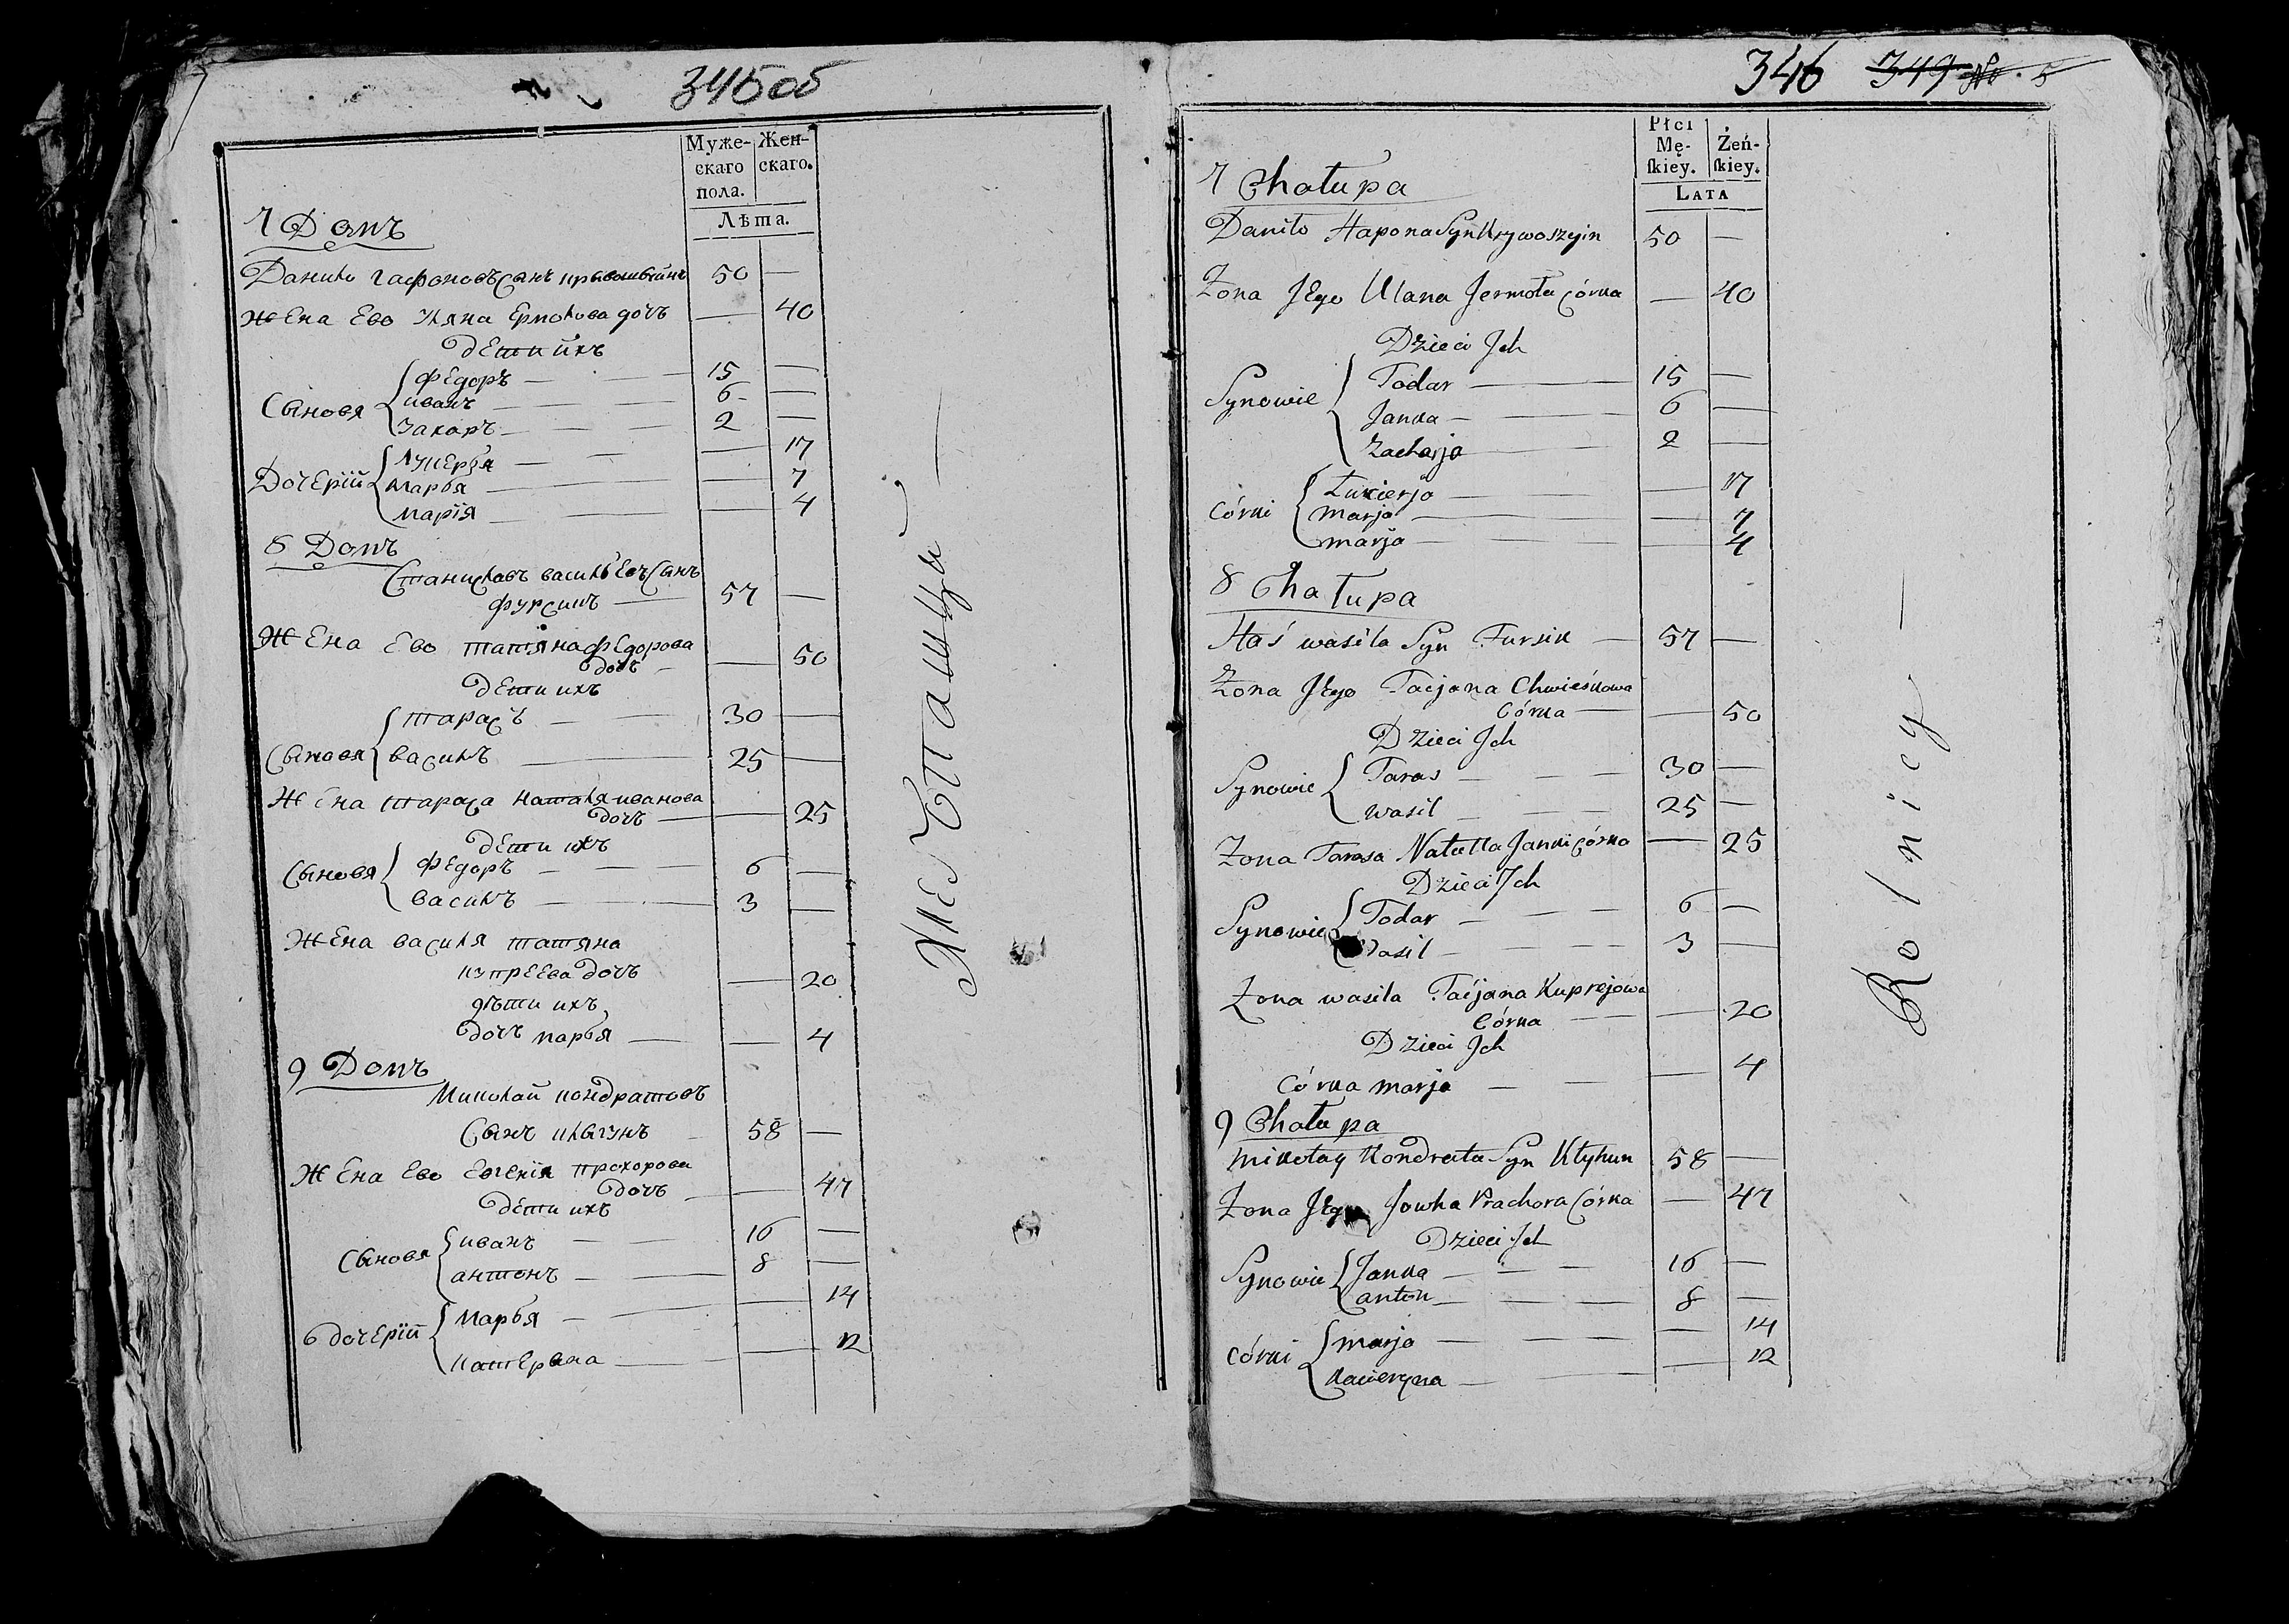 345об
Муже-
скаго
пола.
Жен-
скаго.
Лѣта.
7 Домъ
Данило Гапоновъ Сынъ 50 —
Жена Ево Уляна Ермолова дочъ — 40
дети ихъ
Сыновя
Федоръ — 15 —
иванъ — 6 —
Захаръ — 2 —
Дочерiй
Лукеръя — 17
Маръя — 7
Марiя — 4
8 Домъ
Станиславъ василъевъ Сынъ
фурсикъ — 57 —
Жена Ево татяна федорова
дочъ — 50
дети ихъ
Сыновя
тарасъ — 30 —
василъ — 25 —
Жена тараса наталя иванова
дочъ — 25
дети ихъ
Сыновя
Федоръ — 6 —
василъ — 3 —
Жена василя татяна
купреева дочъ — 20
дѣти ихъ
дочъ маръя — 4
9 Домъ
Миколай кондратовъ
Сынъ клыгунъ 58 —
Жена Ево Евгенiя прохорова
дочъ — 47
дети ихъ
Сыновя
иванъ — 16 —
антонъ — 8 —
дочерiй
Маръя — 14
катерына — 12
346 349 № 5
Płci
Mę-
ſkiey.
Żeń-
ſkiey.
LATA
7 Chałupa
Daniło Hapona Syn Krywoszyin 50 —
Żona Jego Ulana Jermoła Córka — 40
Dzieci Jch
Synowie
Todar — 15 —
Janka — 6 —
Zacharja — 2 —
Córki
Łukierja — 17
Marja — 7
Marja — 4
8 Chałupa
Staś Wasila Syn Fursik — 57 —
Żona Jego Tacjana Chwieśkowa
Córka — 50
Dzieci Jch
Synowie
Taras — 30 —
Wasil — 25 —
Żona Tarasa Natalla Janki Córka — 25
Dzieci Jch
Synowie
Todar — 6 —
Wasil — 3 —
Żona Wasila Tacjana Kuprejowa
Córka — 20
Dzieci Jch
Córka Marja — 4
9 Chałupa
Mikołay Kondrata Syn Kłyhun 58 —
Żona Jego Jowha Prachora Córka — 47
Dzieci Jch
Synowie
Janka — 16 —
anton — 8 —
Córki
Marja — 14
Kacieryna — 12
Rolnicy